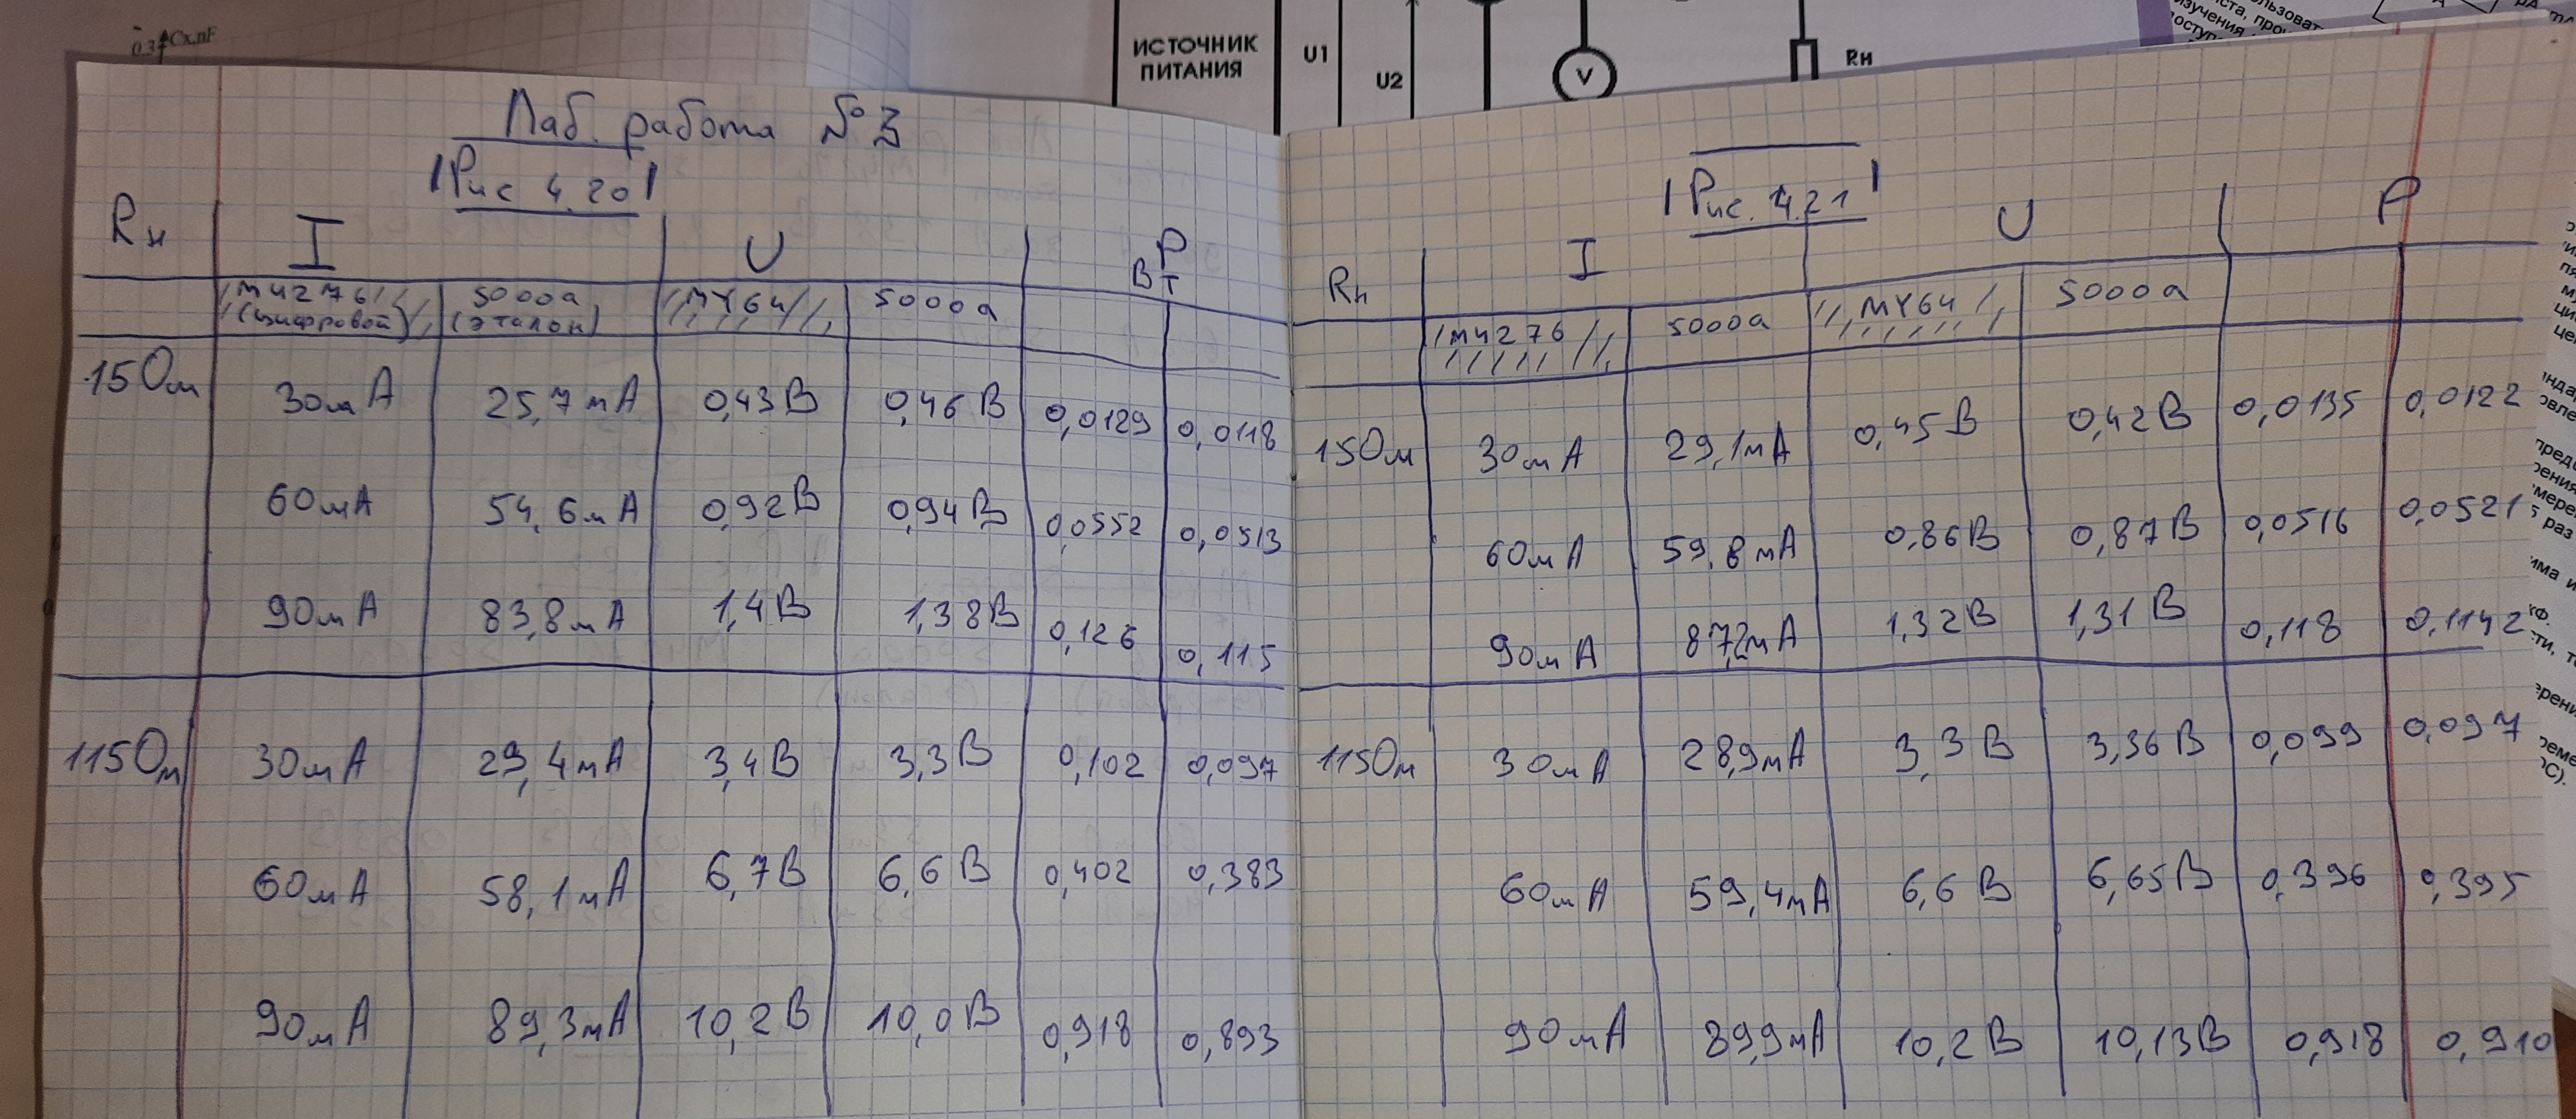 0.3 Cx,nF
ИСТОЧНИК
ПИТАНИЯ
U1
U2
V
Rн
Лаб. работа №3
Рис 4.20
Rн I U P
Вт
М4276 (цифровой) 5000а (эталон) MY64 5000а
15Ом 30мА 25,7мА 0,43В 0,46В 0,0129 0,0118
60мА 54,6мА 0,92В 0,94В 0,0552 0,0513
90мА 83,8мА 1,4В 1,38В 0,126 0,115
115Ом 30мА 29,4мА 3,4В 3,3В 0,102 0,097
60мА 58,1мА 6,7В 6,6В 0,402 0,383
90мА 89,3мА 10,2В 10,0В 0,918 0,893
Рис. 4.21
Rн I U P
М4276 5000а MY64 5000а
15Ом 30мА 29,1мА 0,45В 0,42В 0,0135 0,0122
60мА 59,8мА 0,86В 0,87В 0,0516 0,0521
90мА 87,2мА 1,32В 1,31В 0,118 0,1142
115Ом 30мА 28,9мА 3,3В 3,36В 0,099 0,097
60мА 59,4мА 6,6В 6,65В 0,396 0,395
90мА 89,9мА 10,2В 10,13В 0,918 0,910